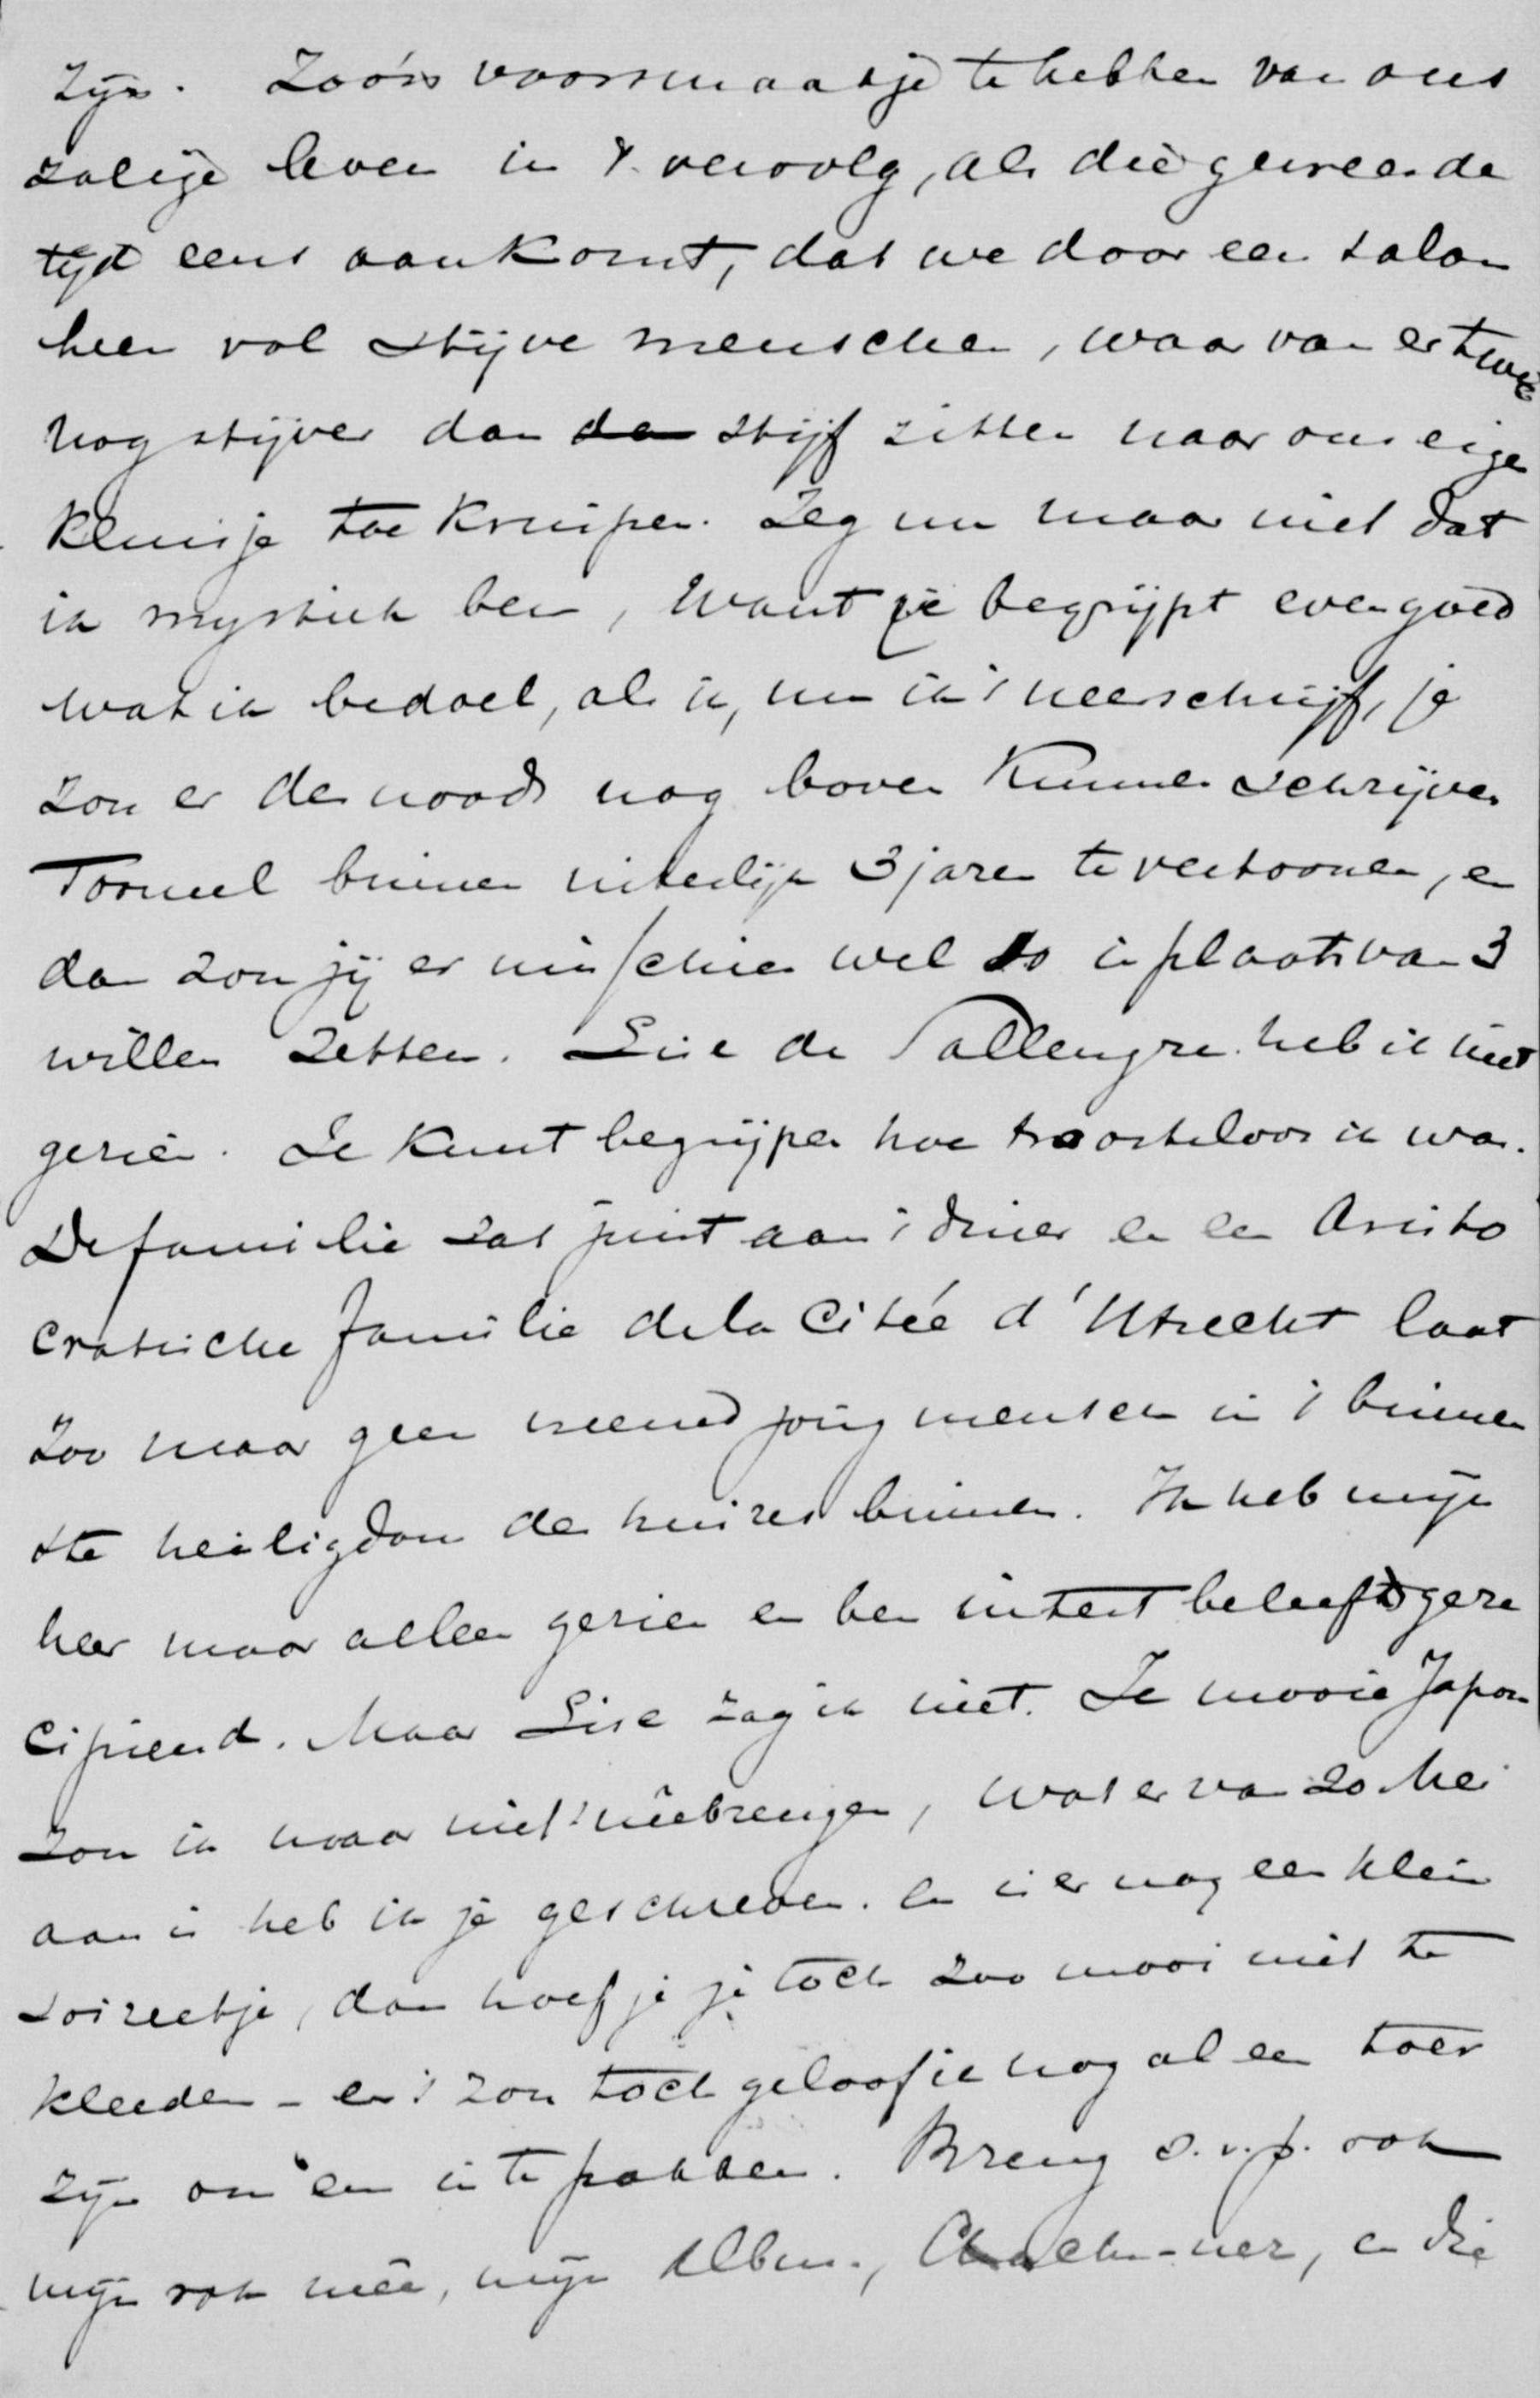 zijn. Zoo'n voorsmaakje te hebben van ons
zalige leven in 't vervolg, als die gewensde
tijd eens aankomt, dat we door een salon
heen vol stijve menschen, waar van er twee
nog stijver dan stijf zitten naar ons eigen
kluisje toe kruipen. Zeg nu maar niet dat
ik mystiek ben, want je begrijpt evengoed
wat ik bedoel, als ik, nu ik 't neerschrijf, je
zou er des noods nog boven kunnen schrijven
Tooneel binnen uiterlijk 3 jaren te vertoonen, en
dan zou jij er misschien wel 10 in plaats van 3
willen zetten. Lise de Sallengre heb ik niet
gezien. Je kunt begrijpen hoe troosteloos ik was.
De familie zat juist aan 't diner en een Aristo
cratische familie de la Citée d'Utrecht laat
zoo maar geen vreemd jong mensch in 't binnen
ste heiligdom des huizes binnen. Ik heb mijn
heer maar alleen gezien en ben uiterst beleefd gere
cipieerd. Maar Lise zag ik niet. Je mooie Japon
zou ik maar niet meebrengen, wat er van 20 Mei
aan is heb ik je geschreven. En is er nog een klein
soireetje, dan hoef je je toch zoo mooi niet te
kleeden – en 't zou toch geloof ik nog al een toer
zijn om 'em in te pakken. Breng s.v.p. ook
mijn rok mee, mijn Album, Cache-nez, en die